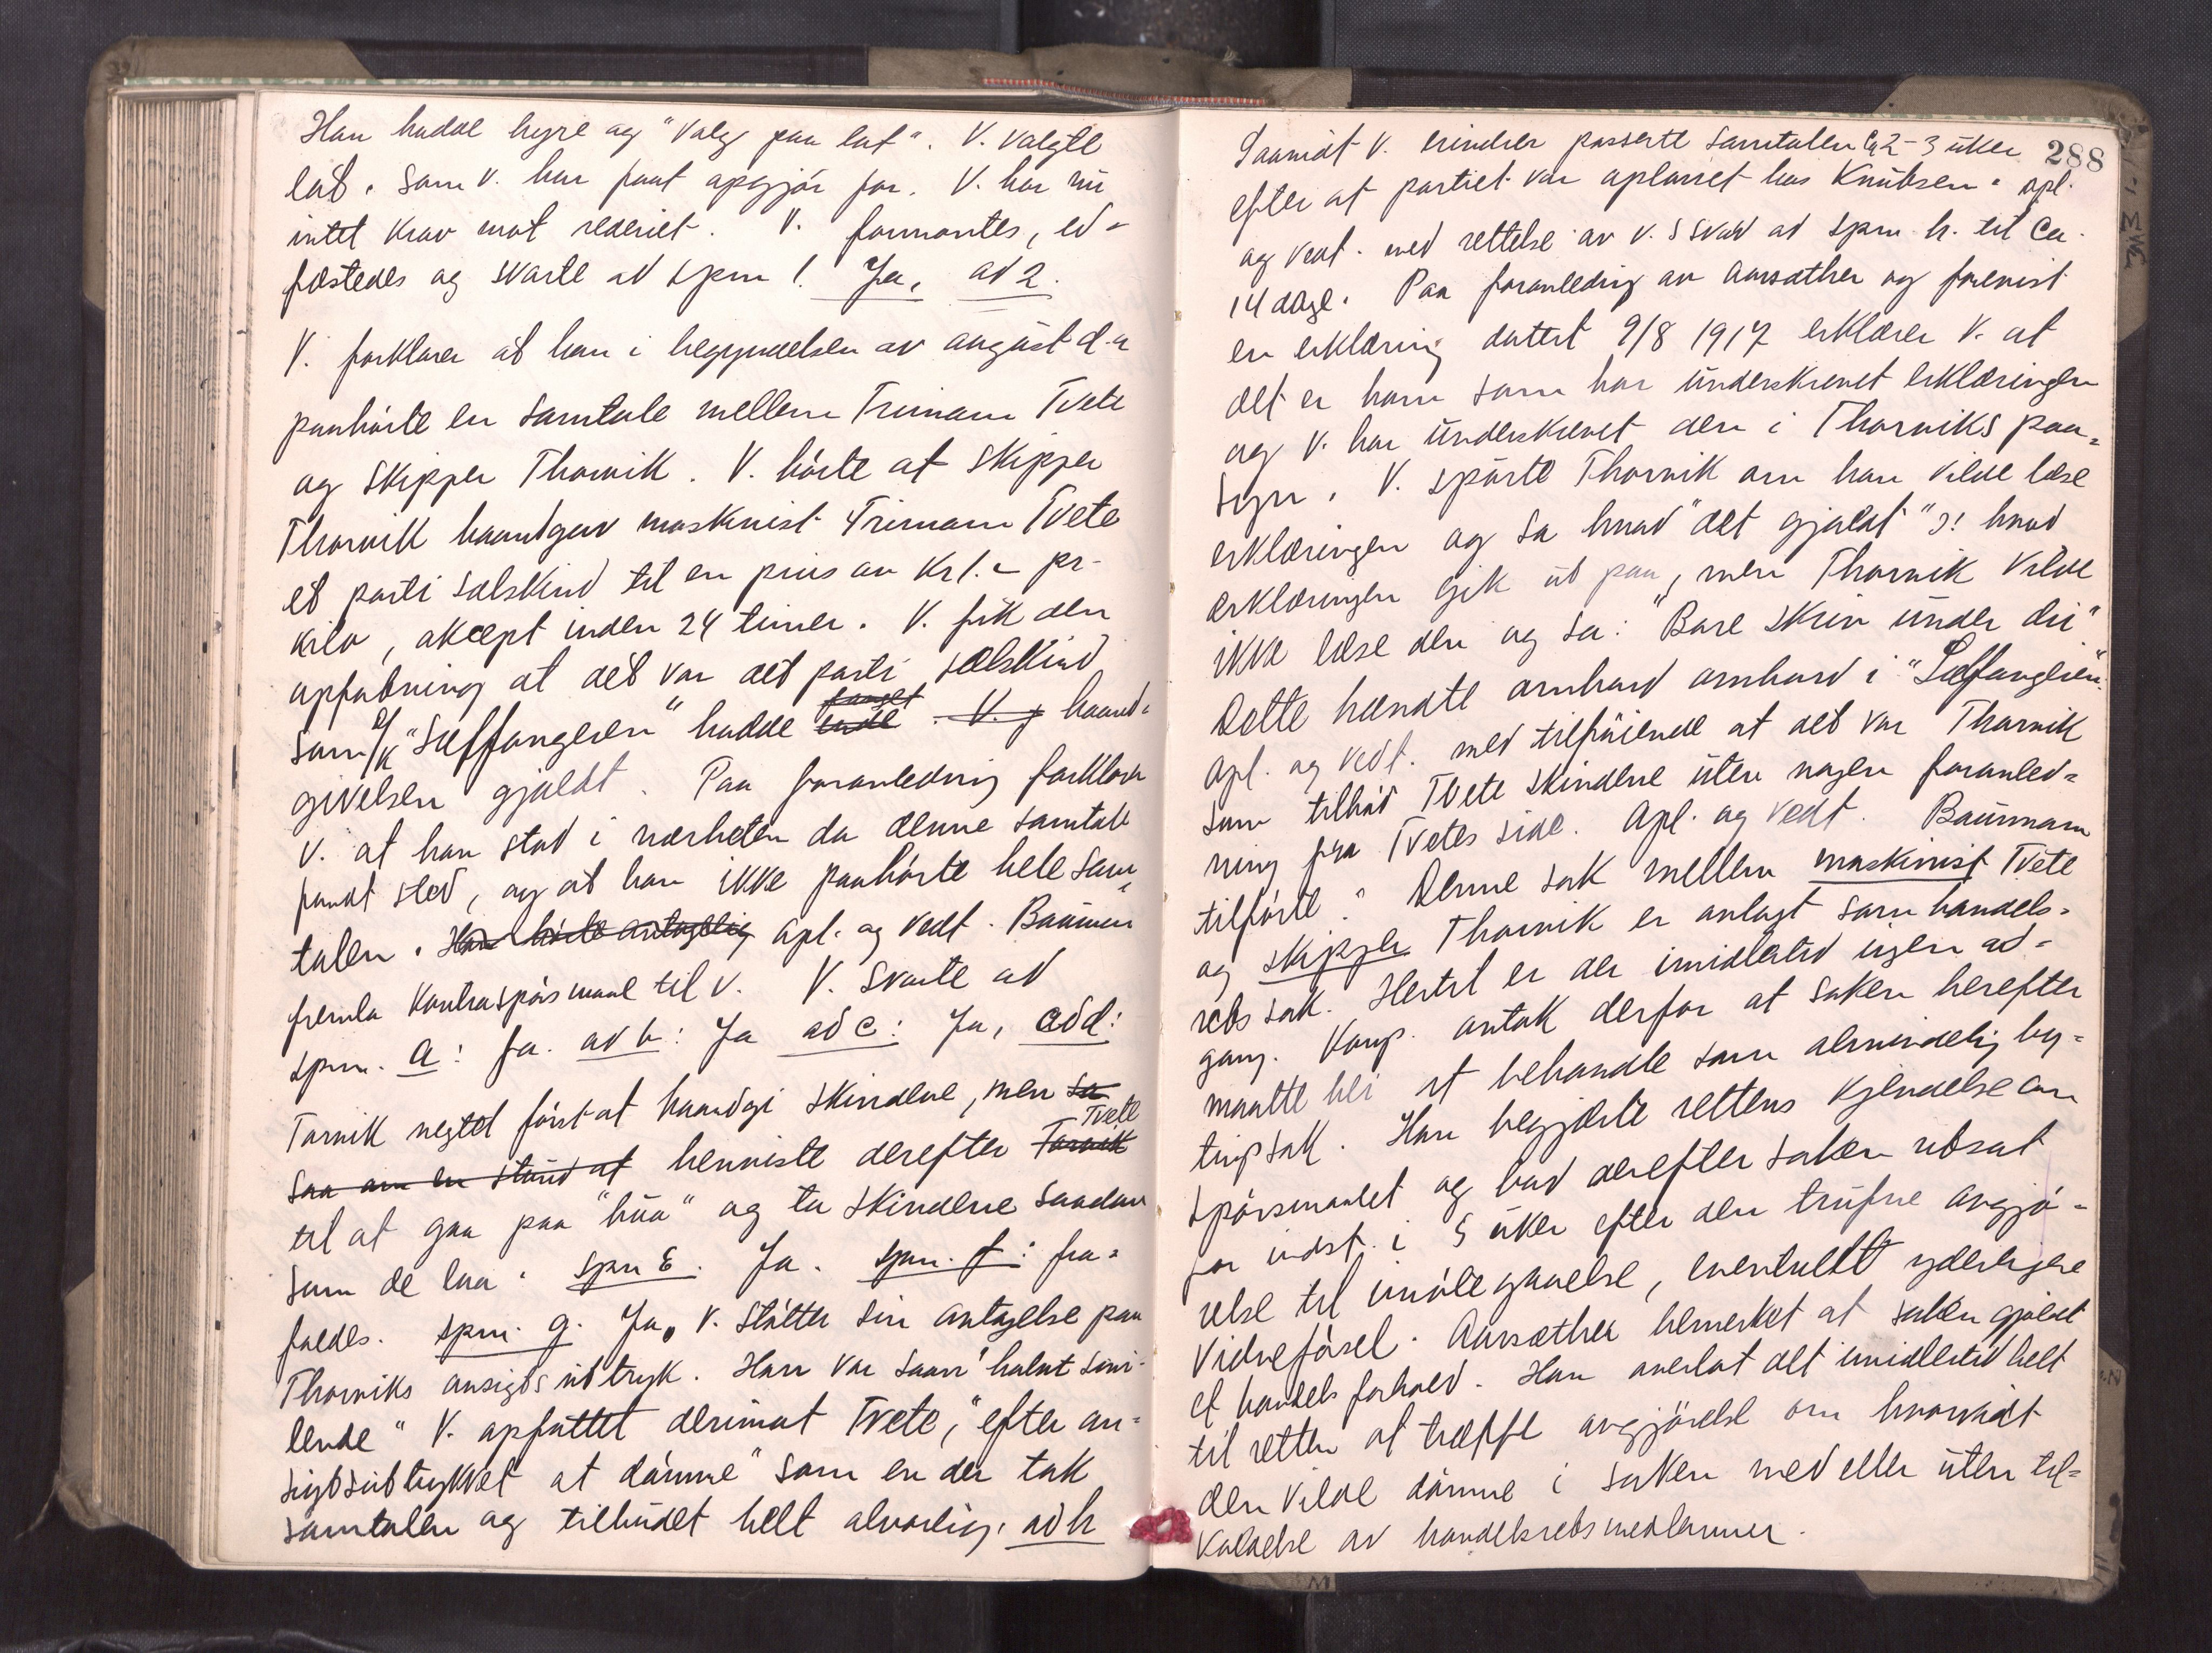 Han hadde hyre og "valg paa lot". V. valgte
lot. Som V. har faat opgjör for. V. har nu
intet krav mot rederiet. V. formantes, ed-
fæstedes og svarte ad spm 1. Ja, ad 2.
V. forklarer at han i begyndelsen av august d.a
paahörte en samtale mellem Trimann Tvete
og Skipper Thorvik. V. hörte at Skipper
Thorvik haandgav maskinist Trimann Tvete
et parti sælskind til en pris av Kr 1.- pr.
kilo, aksept inden 24 timer. V. fik den
opfatning at det var det parti sælskind
som M/K "Sælfangeren" hadde fanget inde. V. g haand-
givelsen gjaldt. Paa foranledning forklarer
V. at han stod i nærheten da denne samtale
fandt sted, og at han ikke paahörte hele sam-
talen. Han hörte antagelig Opl. og vedt. Baumann
fremla kontraspörsmaal til V. V. svarte ad
spm. a: Ja. ad b: Ja ad c: Ja, ad d:
Torvik negtet först at haandgi skindene, men sa
saa om en stund at henviste derefter Torvik Tvete
til at gaa paa "bua" og ta skindene saadan
som de laa. spm E. Ja. spm. f: fra-
faldes. spm. g. Ja, V. stötter sin antagelse paa
Thorviks ansigtsuttryk. Han var saan "halvt smi-
lende" V. opfattet derimot Tvete, "efter an-
sigtsuttrykket at dömme" som en der tok
samtalen og tilbudet helt alvorlig. ad h
288
Saavidt V. erindrer passerte samtalen ca 2-3 uker
efter at partiet var oplosset hos Knutsen. Opl.
og vedt. med rettelse av V.s svar ad spm. h. til Ca.
14 dage. Paa foranledning av Aarsæther og forevist
en erklæring datert 9/8 1917 erklærer V. at
det er ham som har underskrevet erklæringen
og V. har underskrevet den i Thorviks paa-
syn. V. spurte Thorvik om han vilde læse
erklæringen og sa hvad "det gjaldt" ɔ: hvad
erklæringen gik ut paa, men Thorvik vilde
ikke læse den og sa: "Bare skriv under du"
Dette hændte ombord ombord i "Sælfangeren".
Opl. og vedt. med tilföiende at det var Thorvik
som tilböd Tvete skindene uten nogen foranled-
ning fra Tvetes side. Opl. og vedt. Baumann
tilförte: "Denne sak mellem maskinist Tvete
og skipper Thorvik er anlagt som handels-
rets sak. Hertil er der imidlertid ingen ad-
gang. Komp. antok derfor at saken herefter
maatte bli at behandle som almindelig by-
tingssak. Han begjærte rettens kjendelse om
spörsmaalet og bad derefter saken utsat
for indst. i 5 uker efter den trufne avgjö-
relse til imötegaaelse, eventuelt yderligere
vidneförsel. Aarsæther bemerket at saken gjaldt
et handelsforhold. Han overlot det imidlertid helt
til retten at træffe avgjörelse om hvorvidt
den vilde dömme i saken med eller uten til-
kaldelse av handelsretsmedlemmer.